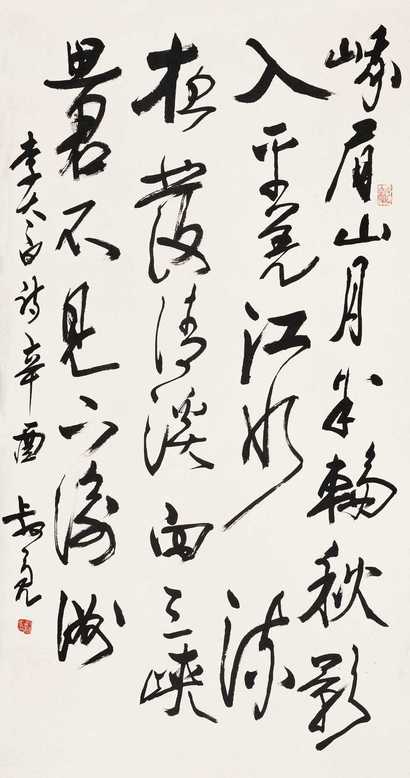 峨眉山月半輪秋影
入平羌江水流
夜發清溪向三峽
思君不見下渝州
李太白詩辛酉 叔亮